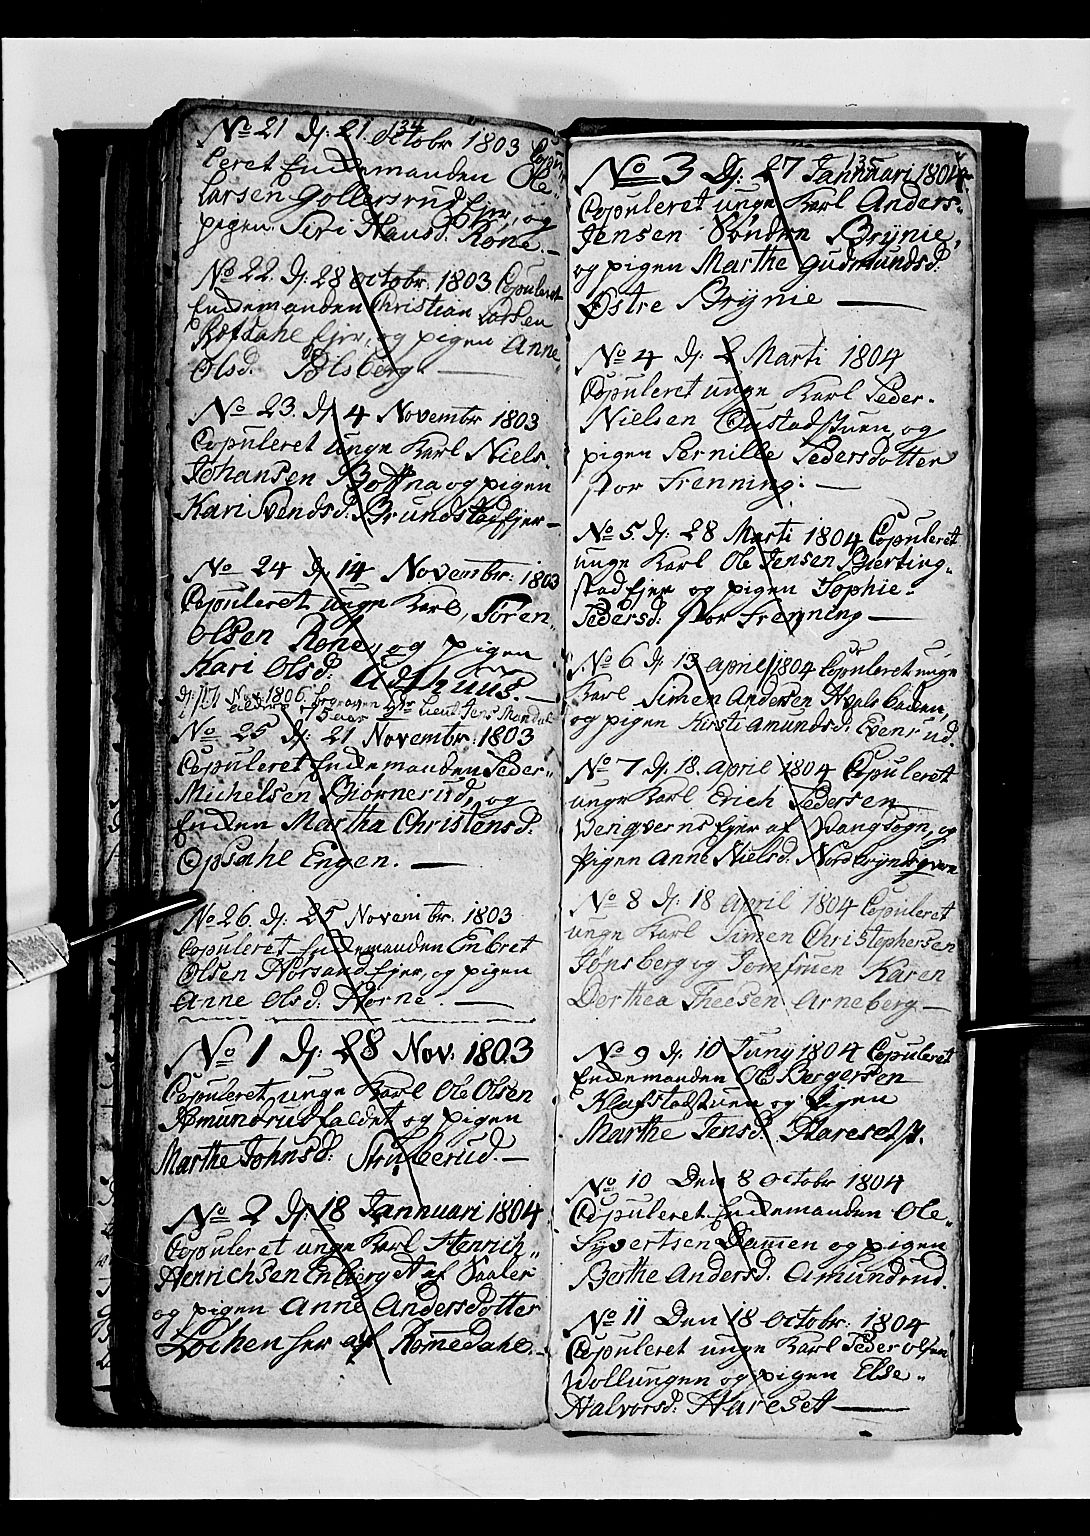 134
No 21 D: 21. Octobr 1803 Copu-
leret Enckemanden Ole
Larsen Gollersrud Ejer, og
pigen Siri Hansd. Rone. —
No 22. D: 28 octobr. 1803 Copuleret
Enckemanden Christian Larsen
Ejer, og pigen Anne
Olsd. Polsberg —
No 23. D: 4 Novembr 1803
Copuleret unge Karl Niels
Johansen Bottna og pigen
Kari Svendsd. Brundstad Ejer —
No 24 D: 14 Novembr: 1803
Copuleret unge Karl, Søren
Olsen Rone, og pigen
Kari Olsd. Udthuus. —
D: Nov. 1806. begraven Lieut. Jens
5 aar
No 25 D: 21 Novembr. 1803
Copuleret Enckemanden Peder
Michelsen Biørnerud, og
Encken Martha Christensd.
Opsahl Engen. —
No 26. D: 25 Novembr. 1803
Copuleret Enckemanden Enbret
Olsen Horsand Ejer, og pigen
Anne Olsd. Horne. —
No 1 D: 28 Nov: 1803
Copuleret unge Karl Ole Olsen
Amundrudfaldet og pigen
Marthe Johnsd: Struberud. —
No 2 D: 18 Jannuari 1804
Copuleret unge Karl Henrich
Henrichsen Enberget af Vaaler
og pigen Anne Andersdotter
Løchen her af Romedahl. —
135
No 3 D: 27 Jannuari 1804
Copuleret unge Karl Anders
Jensen Søndre Brynie,
og pigen Marthe Gudmundsd.
Østre Brynie —
No 4 D: 2 Marti 1804
Copuleret unge Karl Peder
Nielsen Oustadstuen, og
pigen Pernille Pedersdotter
Stor Frenning: —
No 5 D: 28 Marti 1804 Copuleret
unge Karl Ole Jensen Bierting-
stad Ejer og pigen Sophie
Pedersd: Stor Frenning —
No 6 D: 13 april 1804 Copuleret unge
Karl Simen Andersen Hvalsbacken,
og pigen Kirsti Amundsd: Evenrud.
No 7 D: 18. april 1804 Copuleret
unge Karl Erich Pedersen
Berqverns Ejer af Vang Sogn, og
Pigen Anne Nielsd. Nordbryndqvern
No 8 D: 18 april 1804 Copuleret
unge Karl Simen Christophersen
Jønsberg og Jomfruen Karen
Dorthea Theesen Arneberg —
No 9 D: 10 Juny 1804 Copuleret
Enckemanden Ole Bergersen
Klafstadstuen og pigen
Marthe Jensd. Hareset.
No 10 Den 8 octobr 1804
Copuleret Enckemanden Ole
Syvertsen Dammen og pigen
Berthe Andersd. Amundrud.
No 11 Den 18 octobr: 1804
Copuleret unge Karl Peder Olsen
Wollungen og pigen Else
Halvorsd: Hareset —